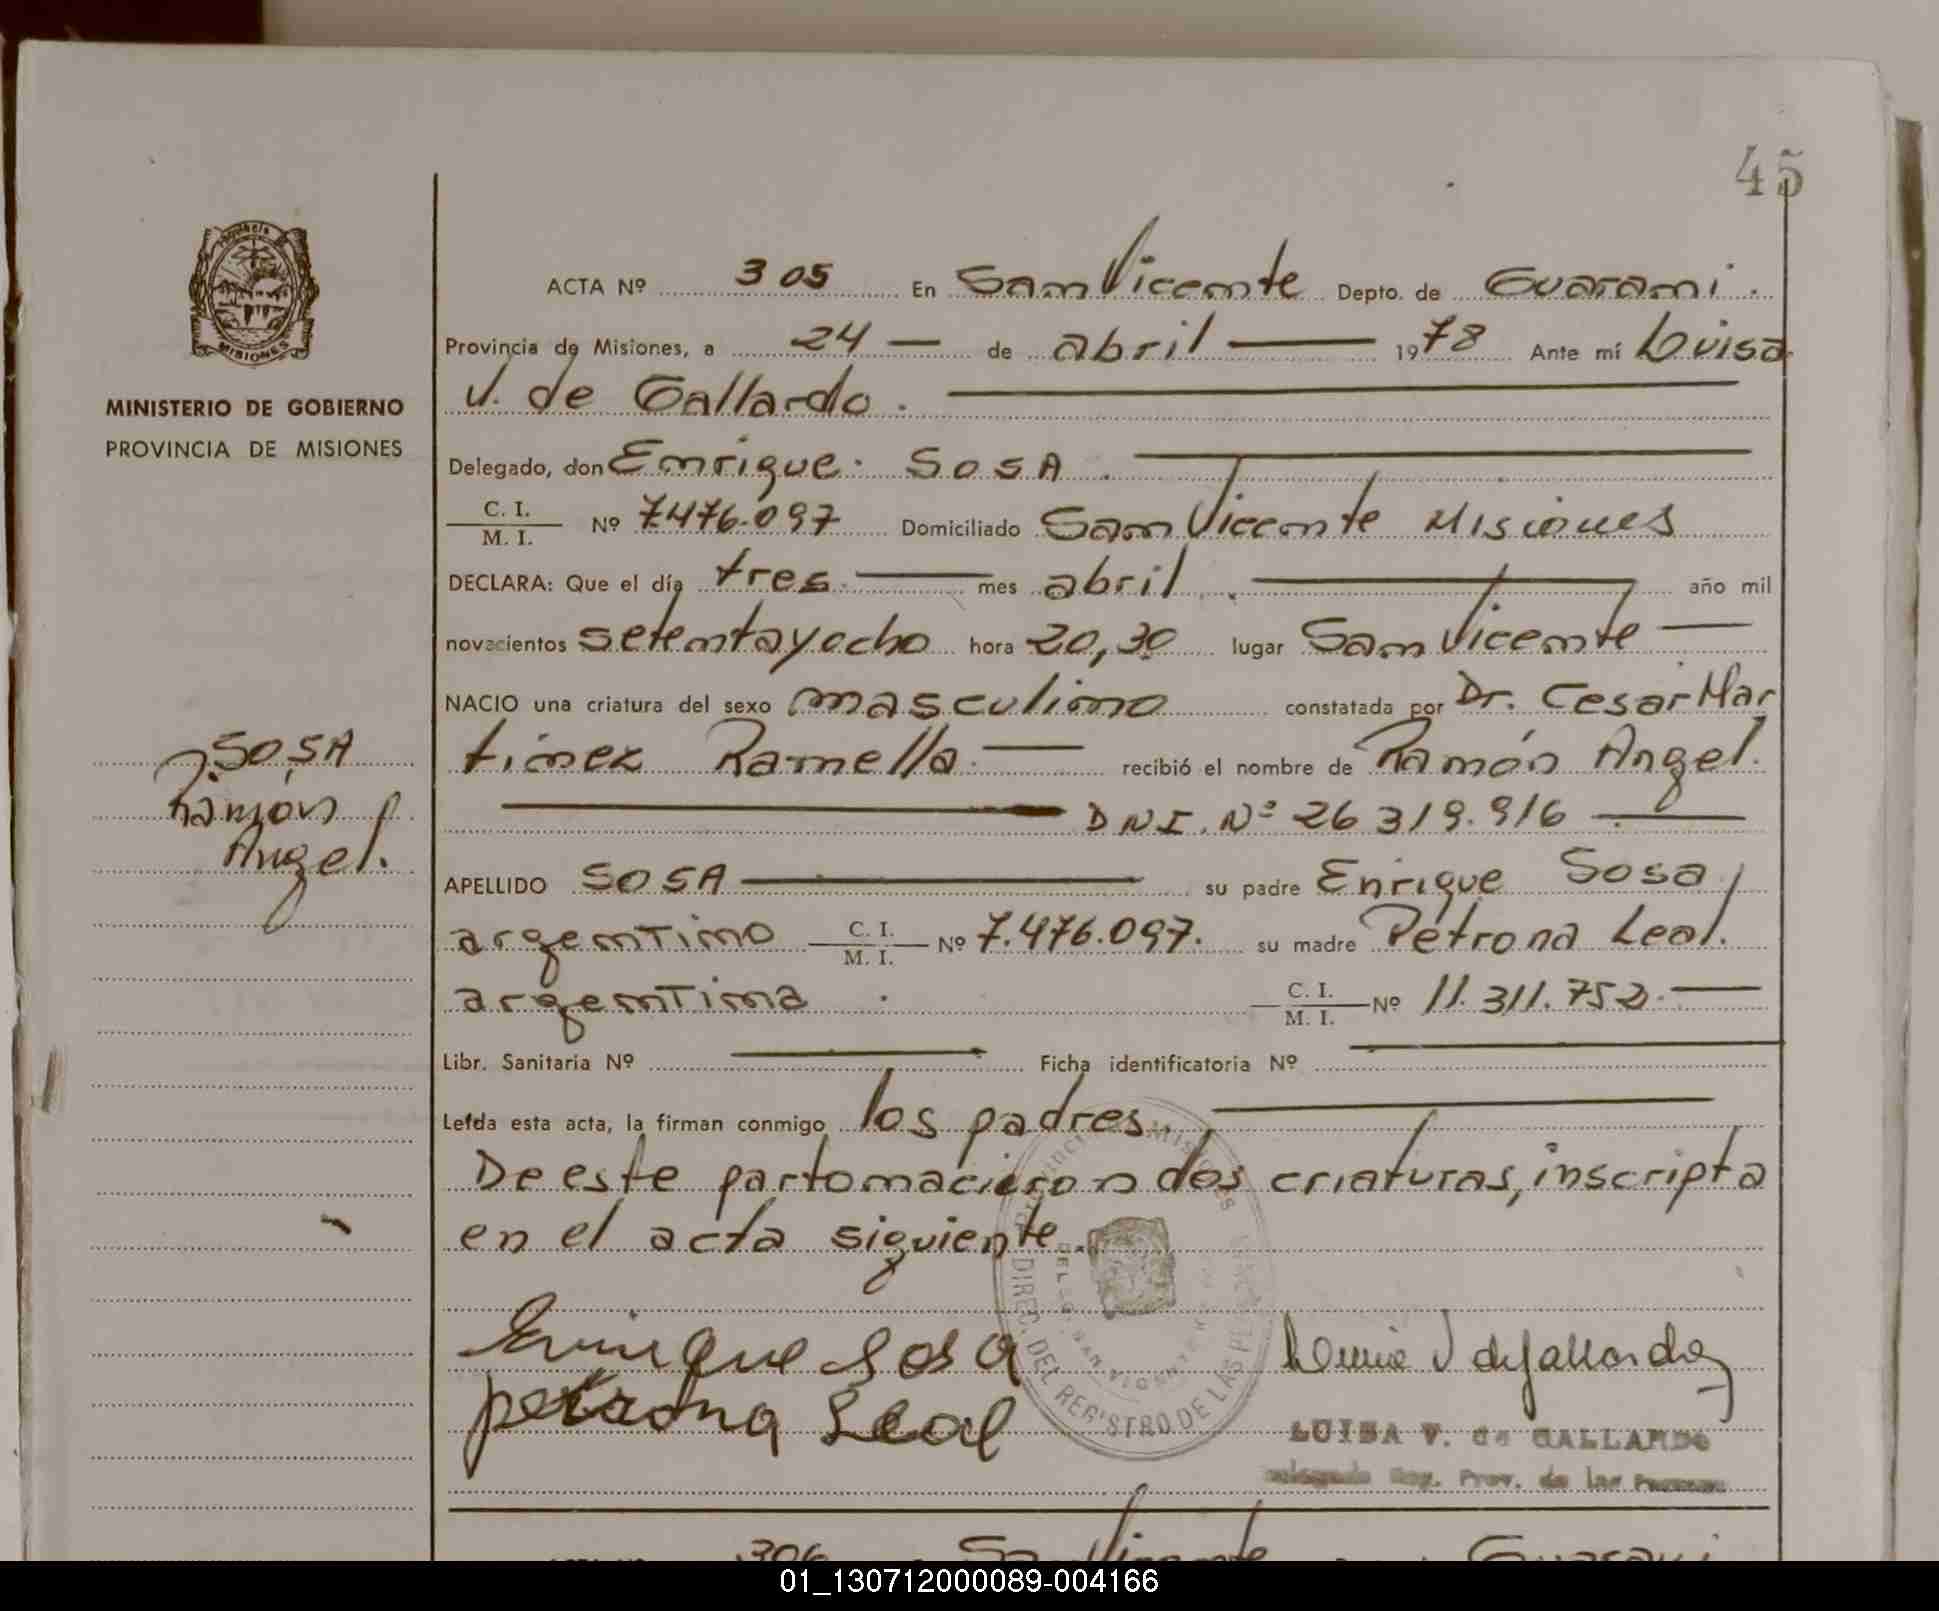 45
MINISTERIO DE GOBIERNO
PROVINCIA DE MISIONES
SOSA
Ramón
Angel.
ACTA Nº 305 En San Vicente Depto. de Guarani.
Provincia de Misiones, a 24 — de abril — 1978 Ante mí Luisa
V. de Gallardo. —
Delegado, don Enrique SOSA. —
C. I. / M. I. Nº 7.476.097 Domiciliado San Vicente Misiones
DECLARA: Que el día tres — mes abril — año mil
novecientos setentayocho hora 20,30 lugar San Vicente —
NACIO una criatura del sexo masculino constatada por Dr. Cesar Mar
tinez Ramella — recibió el nombre de Ramón Angel.
— DNI. Nº 26 319.916 —
APELLIDO SOSA — su padre Enrique Sosa
argentino C. I. / M. I. Nº 7.476.097. su madre Petrona Leal.
argentina . C. I. / M. I. Nº 11.311.752. —
Libr. Sanitaria Nº — Ficha identificatoria Nº —
Leída esta acta, la firman conmigo los padres. —
De este parto nacieron dos criaturas, inscripta
en el acta siguiente.
Enrique Sosa
petrona Leal
Luisa V de Gallardo
DIREC. DEL REGISTRO DE LAS
LUISA V. de GALLARDO
Delegado Reg. Prov. de las Personas
306 San Vicente Guarani
01_130712000089-004166